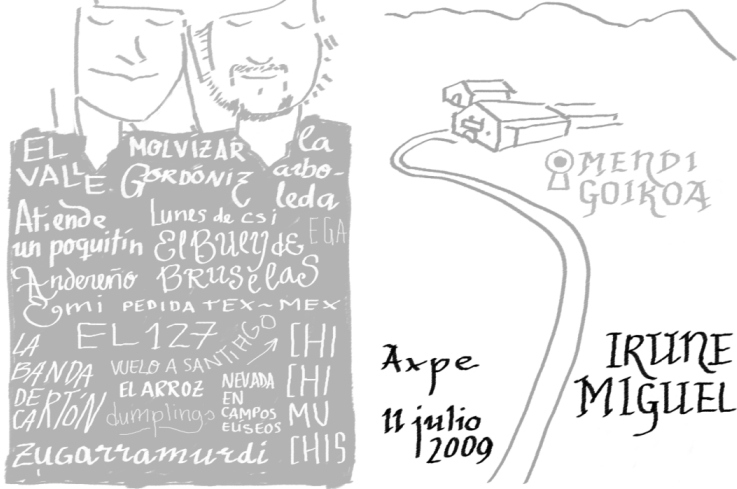 EL VALLE
MOLVIZAR
GORDÓNIZ
la arbo-
leda
Atiende
un poquitín
Lunes de csi
El Bully de
BRUSELAS
EGA
Andereño
Emi
PEDIDA TEX-MEX
EL 127
LA
BANDA
DE
CARTÓN
VUELO A SANTIAGO
EL ARROZ
dumplings
NEVADA
EN
CAMPOS
ELÍSEOS
CHI
CHI
MU
CHIS
Zugarramurdi
MENDI
GOIKOA
Axpe
11 julio
2009
IRUNE
MIGUEL